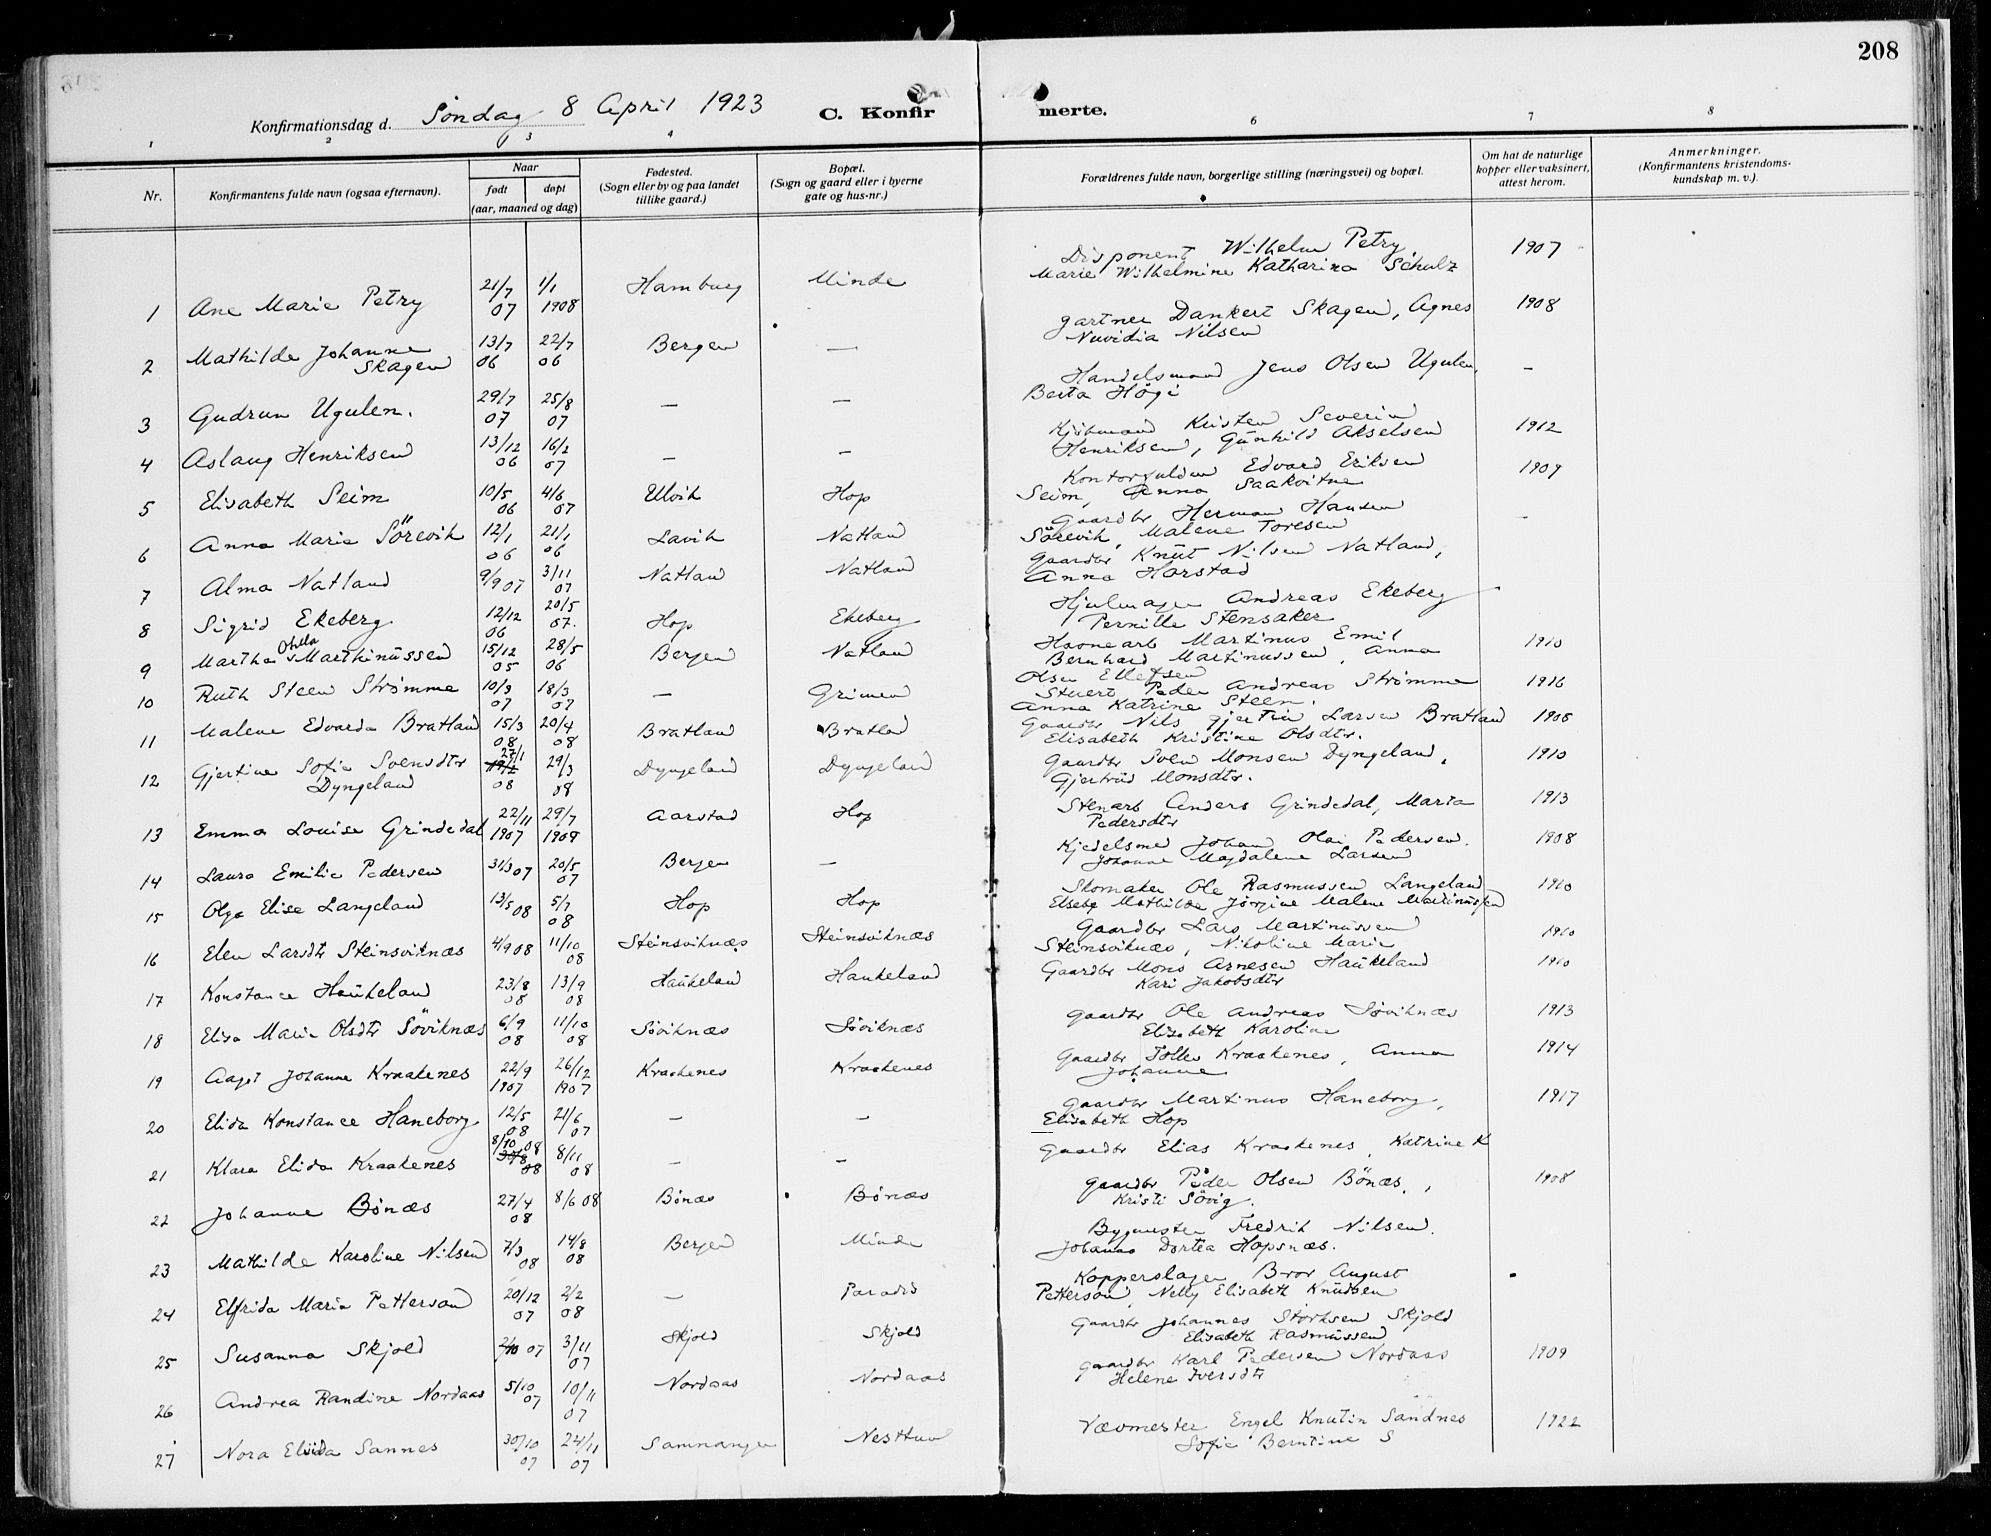 208
Konfirmationsdag d. Søndag 8 April 1923 C. Konfirmerte.
1 2 3 4 6 7 8
Nr. Konfirmantens fulde navn (ogsaa efternavn). Naar født døpt (aar, maaned og dag) Fødested. (Sogn eller by og paa landet tillike gaard.) Bopæl. (Sogn og gaard eller i byerne gate og hus-nr.) Forældrenes fulde navn, borgerlige stilling (næringsvei) og bopæl. Om hat de naturlige kopper eller vaksinert, attest herom. Anmerkninger. (Konfirmantens kristendoms-kundskap m. v.).
1 Ane Marie Petry 21/7 07 1/1 1908 Hamburg Minde Disponent Wilhelm Petry, Marie Wilhelmine Katharina Schulz 1907
2 Mathilde Johanne Skagen 13/7 06 22/7 06 Bergen — gartner Dankert Skagen, Agnes Nilsen 1908
3 Gudrun Ugulen. 29/7 07 25/8 07 — — Handelsmand Jens Olsen Ugulen, Berta Høgi —
4 Aslaug Henriksen 13/12 06 16/2 07 — — Kjöbmand Kristen Severin Henriksen, Gunhild Akselsen 1912
5 Elisabeth Seim 10/5 06 4/6 07 Ulvik Hop Edvard Eriksen Seim, Anna Saakvitne 1909
6 Anna Marie Sörevik 12/1 06 21/1 06 Lavik Natland Gaardbr Herman Hansen Sörevik, Malene Toresen -
7 Alma Natland 9/9 07 3/11 07 Natland Natland Gaardbr Knut Nilsen Natland, Anna Harstad
8 Sigrid Ekeberg 12/12 06 20/5 07. Hop Ekeberg Hjulmager Andreas Ekeberg Pernille Stensaker
9 Martha Otilia Marthinussen 15/12 05 28/5 06 Bergen Natland Havnearb Martinus Emil Bernhard Martinussen, Anna Olsen Ellefsen 1910
10 Ruth Steen Strømme 10/3 07 18/3 07 — Grimen Stuert Peder Andreas Strømme Anna Katrine Steen. 1916
11 Malene Edvarda Bratland 15/3 08 20/4 08 Bratland Bratlad Gaardbr Nils Gjertin Larsen Bratland Elisabeth Kristine Olsdtr. 1908
12 Gjertine Sofie Svensdtr Dyngeland 27/1 08 29/3 08 Dyngeland Dyngeland Gaardbr Sven Monsen Dyngeland, Gjertrud Monsdtr. 1910
13 Emma Louise Grindedal 22/11 1907 29/7 1908 Aarstad Hop Stenarb Anders Grindedal, Marta Pedersdtr 1913
14 Laura Emilie Pedersen 31/3 07 20/5 07 Bergen — Kjedelsmed Johan Olai Pedersen. Johanne Magdalene Larsen 1908
15 Olga Elise Langeland 13/5 08 5/7 08 Hop Hop Skomaker Ole Rasmussen Langeland Elseby Mathilde Jörgine Malene Martinussen 1910
16 Elen Larsdtr Steinsviknæs 4/9 08 11/10 08 Steinsviknæs Steinsviknæs Gaardbr Lars Martinussen Steinsviknæs, Nikoline Marie 1910
17 Konstance Haukeland 23/8 08 13/9 08 Haukeland Haukeland Gaardbr Mons Arnesen Haukeland Kari Jakobsdtr 1910
18 Elisa Marie Olsdtr Söviknæs 6/9 08 11/10 08 Söviknæs Söviknæs gaardbr Ole Andreas Søviknæs Elisabeth Karoline 1913
19 Aagot Johanne Kraakenes 22/9 1907 26/12 1907 Kraakenes Kraakenes gaardbr Tollev Kraakenes, Anna Johanne 1914
20 Elida Konstance Haneborg 12/5 08 21/6 07 — — gaardbr Martinus Haneborg, Elisabeth Hop 1917
21 Klara Elida Kraakenes 8/10 08 30/8 08 8/11 08 — — gaardbr Elias Kraakenes, Katrine K
22 Johanne Bønæs 27/4 08 8/6 08 Bönæs Bönæs gaardbr Peder Olsen Bönæs, Kristi Sövig. 1908
23 Mathilde Karoline Nilsen 7/3 08 14/8 08 Bergen Minde Bygmester Fredrik Nilsen. Johanna Dortea Hopsnæs.
24 Elfrida Maria Petterson 20/12 07 2/2 08 — Paradis Kopperslager Bror August Petterson, Nelly Elisabeth Knudsen
25 Susanna Skjold 2/10 07 3/11 07 Skjold Skjold Gaardbr Johannes Storksen Skjold Elisabeth Rasmussen
26 Andrea Randine Nordaas 5/10 07 10/11 07 Nordaas Nordaas gaardbr Karl Pedersen Nordaas Helene Iversdtr 1909
27 Nora Elvida Sannes 30/10 07 24/11 07 Samnanger Nesttun Vævmester Engel Knutin Sandnes Sofie Berntine S 1922